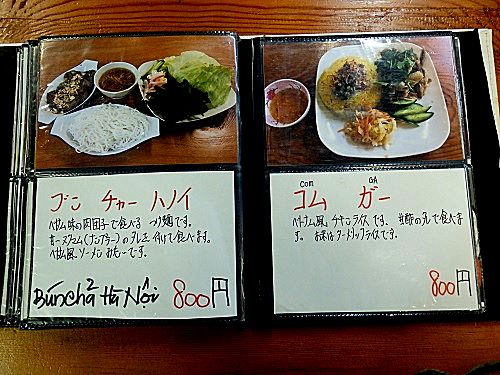 ブン チャー ハノイ
ベトナム味の肉団子で食べる つけ麺です。
のタレを付けて食べます。
ベトナム風 ソーメン みたいです。
Bún chả Hà Nội 800円
Com GÀ
コム ガー
ベトナム風 チキンライスです。 生姜のタレで食べます。
お米は ターメリックライスです。
800円